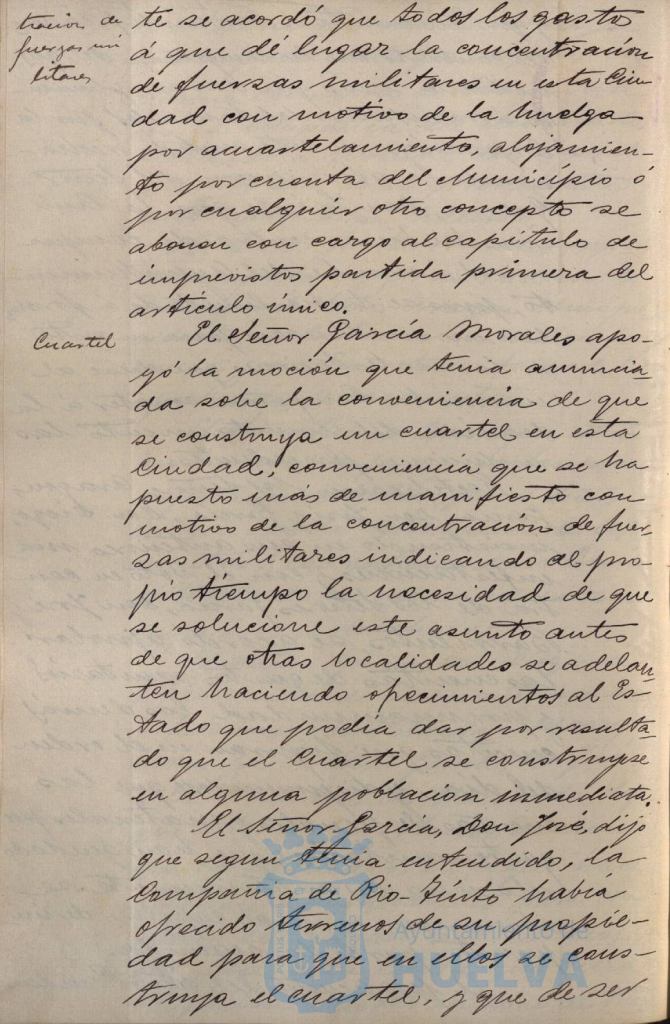 tracion de
fuerzas mi
litares
te se acordó que todos los gasto
á que dé lugar la concentración
de fuerzas militares en esta Ciu
dad con motivo de la huelga
por acuartelamiento, alojamien-
to por cuenta del Municipio ó
por cualquier otro concepto se
abonen con cargo al capitulo de
imprevistos partida primera del
artículo único.
Cuartel
El Señor García Morales apo-
yó la moción que tenia anuncia-
da sobe la conveniencia de que
se construya un cuartel en esta
Ciudad, conveniencia que se ha
puesto más de manifiesto con
motivo de la concentración de fuer-
zas militares indicando al pro-
pio tiempo la necesidad de que
se solucione este asunto antes
de que otras localidades se adelan-
ten haciendo ofrecimientos al Es-
tado que podia dar por resulta-
do que el Cuartel se construyese
en alguna población inmediata.
El Señor García, Don José, dijo
que segun tenia entendido, la
Compañia de Rio-Tinto habia
ofrecido terrenos de su propie-
dad para que en ellos se cons-
truya el cuartel, y que de ser
Ayuntamiento de
HUELVA